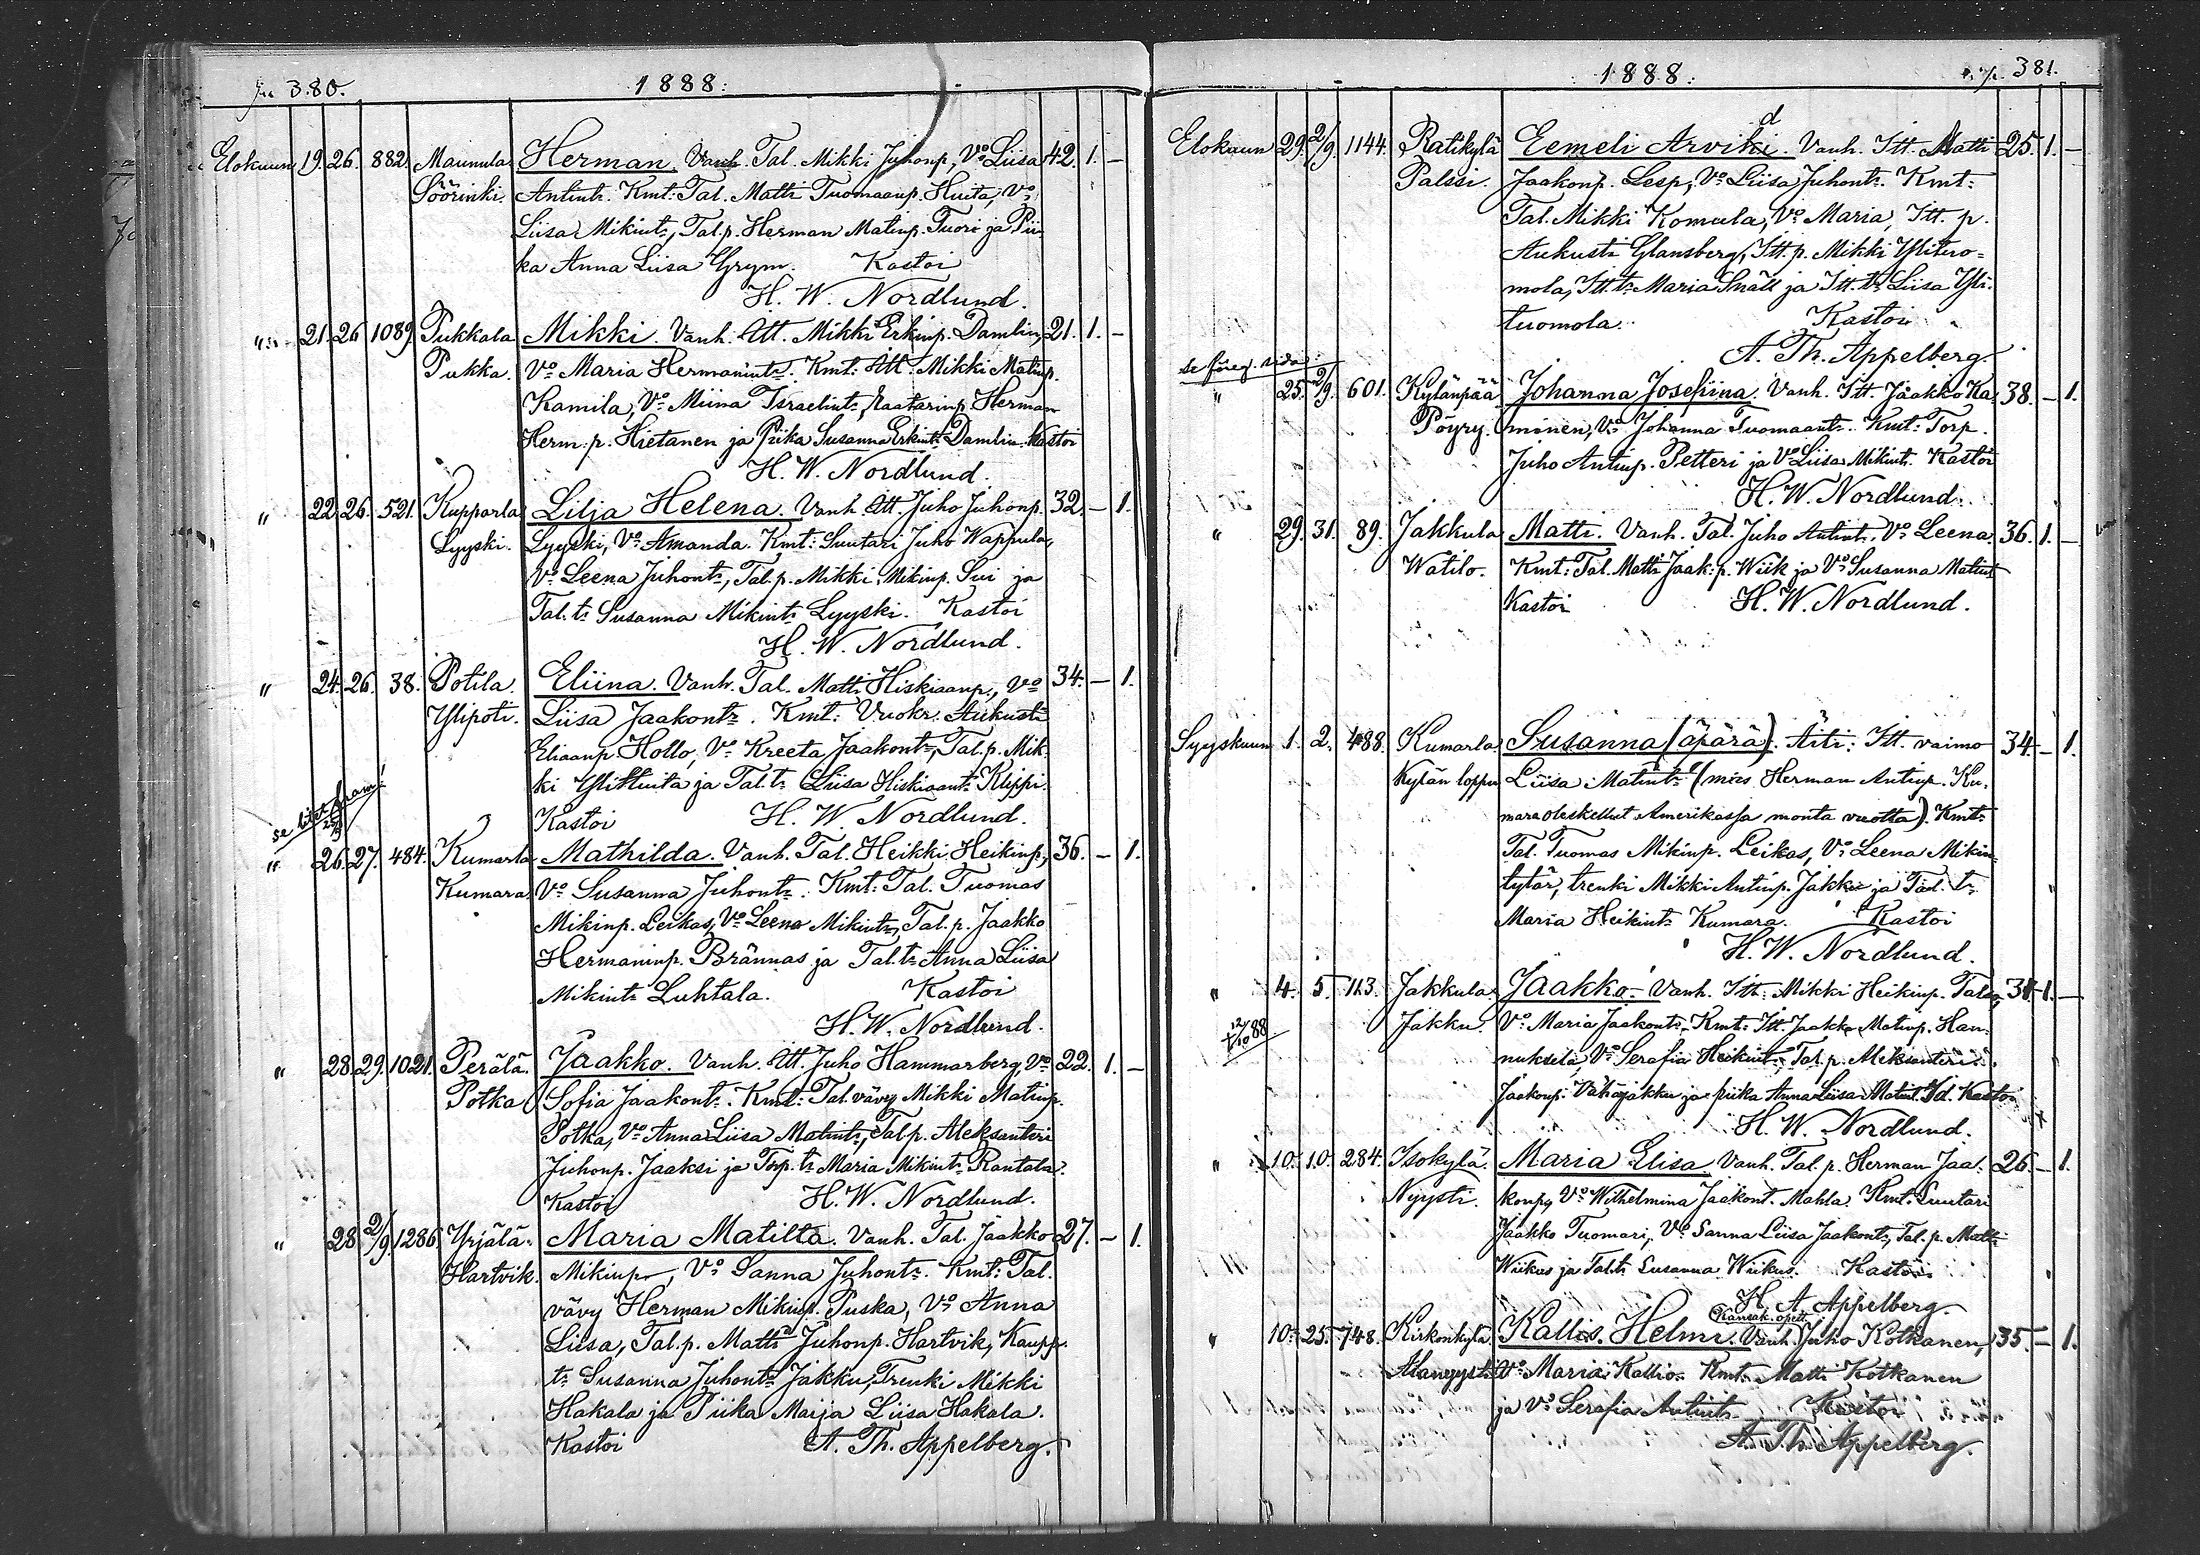 380.
1888.
Elokuun 19. 26. 882. Maunula Herman. Vanh. Tal. Mikki Juhonp., Vo Liisa 42. 1. —
Söörinki. Antintr. Kmt: Tal. Matti Tuomaanp. Huita, Vo
Liisa Mikintr, Tal. p. Herman Matinp. Tuori ja Pii-
ka Anna Liisa Grym. Kastoi
H. W. Nordlund.
" 21. 26. 1089. Pukkala Mikki. Vanh. Itt. Mikki Erkinp. Damlin, 21. 1. —
Pukka. Vo Maria Hermanintr. Kmt: Itt. Mikki Matinp.
Kamila, Vo Miina Israelintr, Herman
Herm. p. Hietanen ja Piika Susanna Erkintr Damlin. Kastoi
H. W. Nordlund.
" 22. 26. 521. Kupparla Lilja Helena. Vanh. Itt. Juho Juhonp. 32. — 1.
Lyyski. Lyyski, Vo Amanda. Kmt: Suutari Juho Wappula,
Vo Leena Juhontr, Tal. p. Mikki Mikinp. Sui ja
Tal. tr Susanna Mikintr Lyyski. Kastoi
H. W. Nordlund.
" 24. 26. 38. Potila. Eliina. Vanh. Tal. Matti Hiskiaanp., Vo 34. — 1.
Ylipoti. Liisa Jaakontr. Kmt: Vuokr. Aukusti
Eliaanp. Hollo, Vo Kreeta Jaakontr, Tal. p. Mik-
ki Ylihuita ja Tal. tr Liisa Hiskiaantr Klippi.
Kastoi H. W. Nordlund.
se fram!
" 26. 27. 484. Kumarla Mathilda. Vanh. Tal. Heikki Heikinp., 36. — 1.
Kumara. Vo Susanna Juhontr. Kmt: Tal. Tuomas
Mikinp. Leikas, Vo Leena Mikintr, Tal. p. Jaakko
Hermaninp. Brännas ja Tal. tr Anna Liisa
Mikintr Luhtala. Kastoi
H. W. Nordlund.
" 28. 29. 1021. Perälä. Jaakko. Vanh. Itt. Juho Hammarberg, Vo 22. 1. —
Potka Sofia Jaakontr. Kmt: Tal. vävy Mikki Matinp.
Potka, Vo Anna Liisa Matintr, Tal. p. Aleksanteri
Juhonp. Jaaksi ja Torp. tr Maria Mikintr Rantala.
Kastoi H. W. Nordlund.
" 28. 2/9. 1286. Yrjälä. Maria Matilta. Vanh. Tal. Jaakko 27. — 1.
Hartvik. Mikinp., Vo Sanna Juhontr. Kmt: Tal.
vävy Herman Mikinp. Puska, Vo Anna
Liisa, Tal. p. Matti Juhonp. Hartvik, Kaupp.
tr Susanna Juhontr Jakku, Trenki Mikki
Hakala ja Piika Maija Liisa Hakala.
Kastoi A. Th. Appelberg.
1888.
381.
Elokuun 29. 2/9. 1144. Ratikylä Eemeli Arvid. Vanh. Itt. Matti 25. 1. —
Palssi. Jaakonp. Lesp, Vo Liisa Juhontr. Kmt:
Tal. Mikki Komula, Vo Maria, Itt. p.
Aukusti Glansberg, Itt. p. Mikki Ylituo-
mola, Itt. tr Maria Snäll ja Itt. tr Liisa Yli-
tuomola. Kastoi
A. Th. Appelberg.
se föreg. sida.
" 25. 2/9. 601. Kylänpää Johanna Josefiina. Vanh. Itt. Jaakko Ka- 38. — 1.
Pöyry. minen, Vo Johanna Tuomaantr. Kmt: Torp.
Juho Antinp. Petteri ja Vo Liisa Mikintr. Kastoi
H. W. Nordlund.
" 29. 31. 89. Jakkula Matti. Vanh. Tal. Juho Antintr. Vo Leena. 36. 1. —
Watilo. Kmt: Tal. Matti Jaak. p. Wiik ja Vo Susanna Matintr
Kastoi H. W. Nordlund.
Syyskuun 1. 2. 488. Kumarla Susanna (äpärä). Äiti: Itt. vaimo 34. — 1.
Kylän loppu Liisa Matintr (mies Herman Antinp. Ku-
mara oleskellut Amerikassa monta vuotta). Kmt:
Tal. Tuomas Mikinp. Leikas, Vo Leena Mikin-
tytär, trenki Mikki Antinp. Jakku ja Tal. tr
Maria Heikintr Kumara. Kastoi
H. W. Nordlund.
" 4. 5. 113. Jakkula Jaakko. Vanh. Itt. Mikki Heikinp. Talso, 31. 1. —
12/10 88 Jakku. Vo Maria Jaakontr. Kmt: Itt. Jaakko Matinp. Han-
nuksela, Vo Serafia Heikintr, Tal. p. Aleksanteri
Jaakonp. Vähäjakku ja piika Anna Liisa Matint. Kastoi
H. W. Nordlund.
" 10. 10. 284. Isokylä. Maria Elisa. Vanh. Tal. p. Herman Jaa- 26. — 1.
Nyysti. konp., Vo Wilhelmina Jaakont. Mahla. Kmt: Suutari
Jaakko Tuomari, Vo Sanna Liisa Jaakontr, Tal. p. Matti
Wiikus ja Tal. tr Susanna Wiikus. Kastoi
H. A. Appelberg.
Kansak. opett.
" 10. 25. 748. Kirkonkylä Kallis Helmi. Vanh. Juho Kotkanen, 35. — 1.
Alanyysti Vo Maria Kallio. Kmt. Matti Kotkanen
ja Vo Serafia Antintr. Kastoi
A. Th. Appelberg.